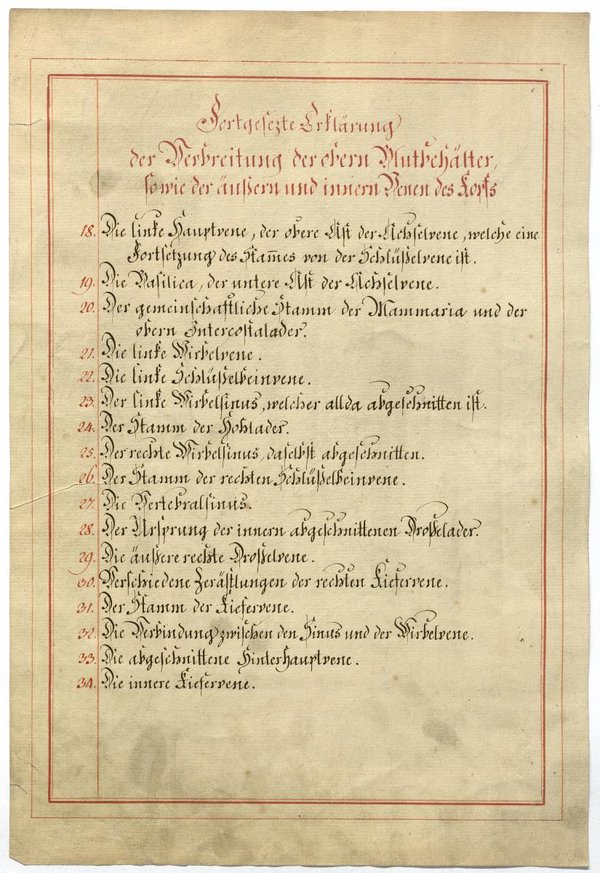 Fortgesezte Erklärung
der Verbreitung der obern Blutbehälter,
sowie der äußern und innern Venen des Kopfs
18. Die linke Hauptvene, der obere Ast der Achselvene, welche eine
Fortsetzung des Stam̅es von der Schlüßelvene ist.
19. Die Basilica, der untere Ast der Achselvene.
20. Der gemeinschaftliche Stamm der Mammaria und der
obern Intercostalader.
21. Die linke Wirbelvene.
22. Die linke Schlüßelbeinvene.
23. Der linke Wirbelsinus, welcher allda abgeschnitten ist.
24. Der Stamm der Hohlader.
25. Der rechte Wirbelsinus, daselbst abgeschnitten.
26. Der Stamm der rechten Schlüßelbeinvene.
27. Die Vertebralsinus.
28. Der Ursprung der innern abgeschnittenen Droßelader.
29. Die äußere rechte Droßelvene.
30. Verschiedene Zerästlungen der rechten Kiefervene.
31. Der Stamm der Kiefervene.
32. Die Verbindung zwischen den Sinus und der Wirbelvene.
33. Die abgeschnittene Hinterhauptvene.
34. Die innere Kiefervene.